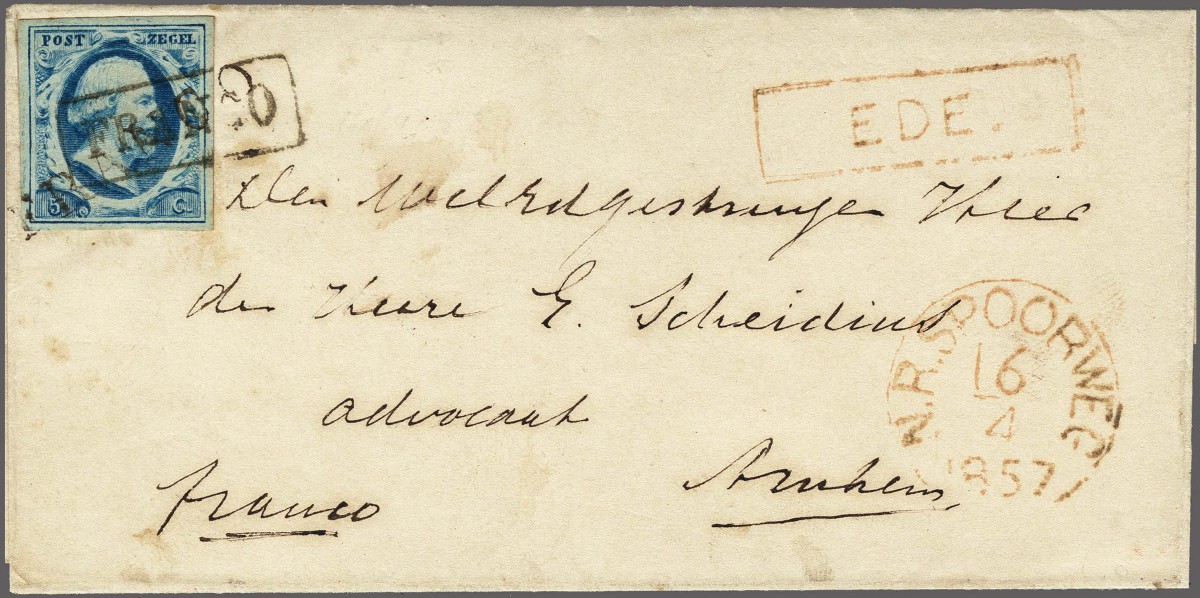 POST ZEGEL
FRANCO
FRANCO
5 C.
EDE.
Den WelEdgestrengen Heer
den Heere E. Scheidius
advocaat
franco Arnhem
N.R.SPOORWEG
16
4
1857